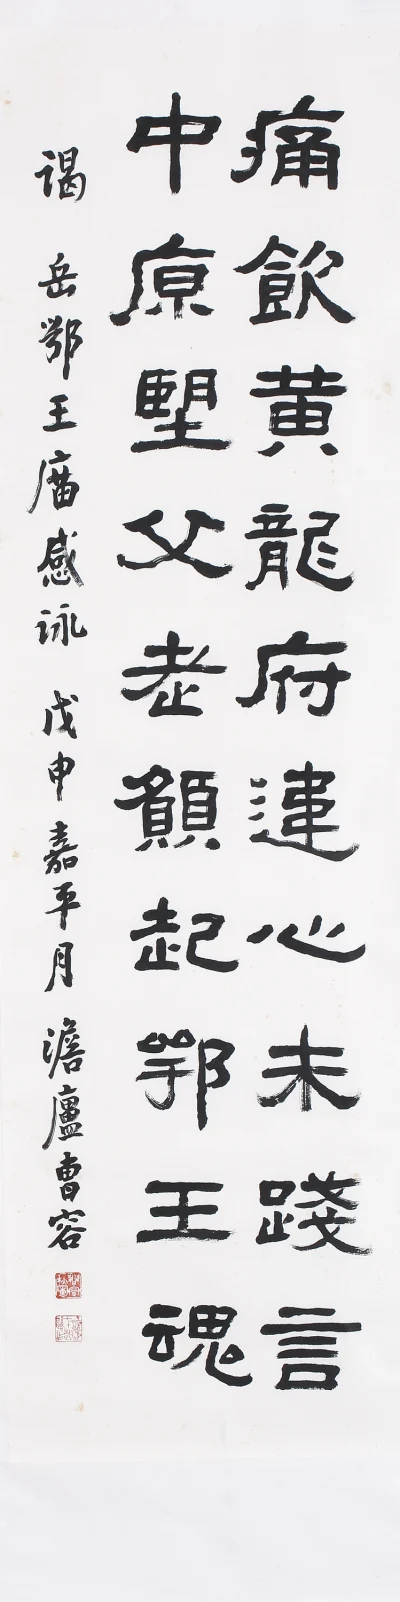 痛飲黃龍府違心未踐言
中原望父老願起鄂王魂
謁 岳鄂王廟感詠 戊申嘉平月 澹廬曹容